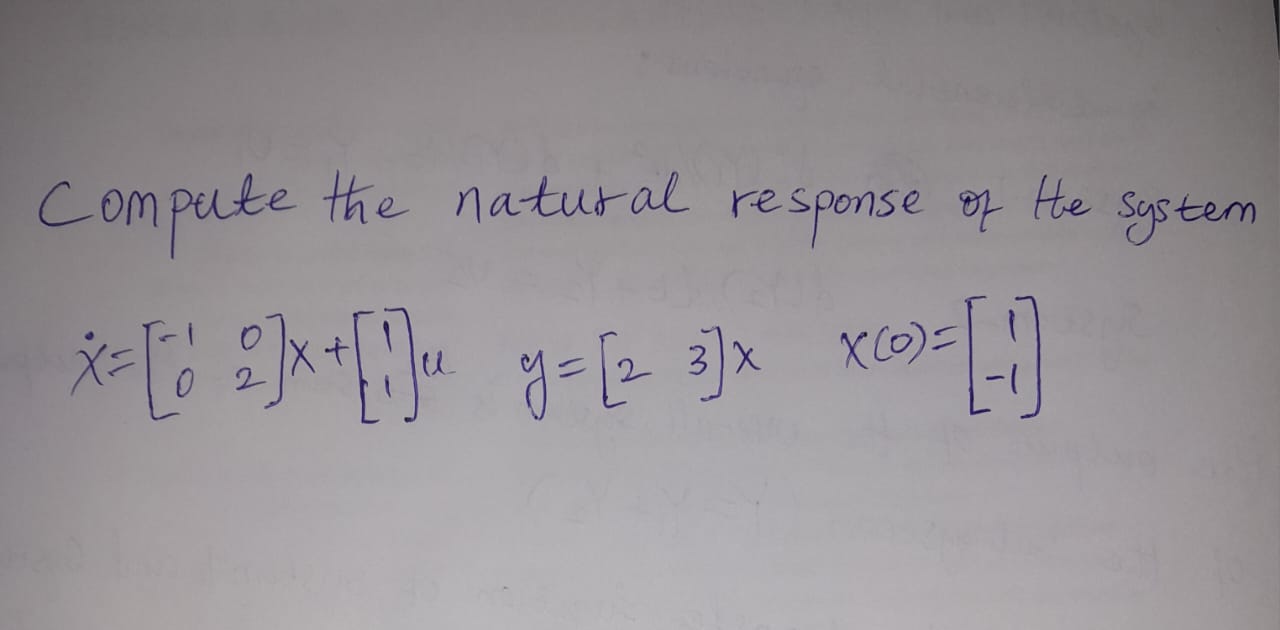 Compute the natural response of the system
ẋ=[-1 0; 0 2]x+[1; 1]u y=[2 3]x x(0)=[1; -1]